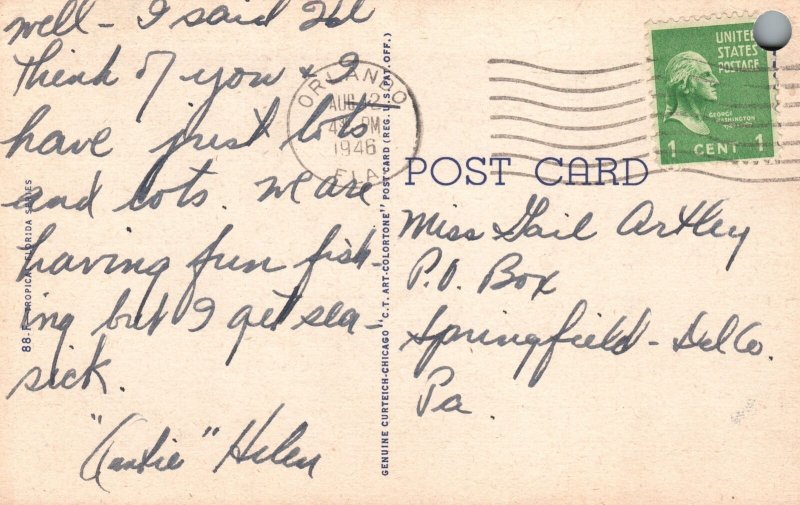 well - I said I'd
think of you & I
have just lots
and lots. We are
having fun fish-
ing but I get sea-
sick.
"Auntie" Helen
88-F- TROPICAL FLORIDA SERIES
GENUINE CURTEICH-CHICAGO "C.T. ART-COLORTONE" POST CARD (REG. U.S. PAT. OFF.)
ORLANDO
AUG 12
4 PM
1946
FLA
POST CARD
UNITED
STATES
POSTAGE
GEORGE
WASHINGTON
1 CENT 1
Miss Gail Artley
P.O. Box
Springfield - Del Co.
Pa.